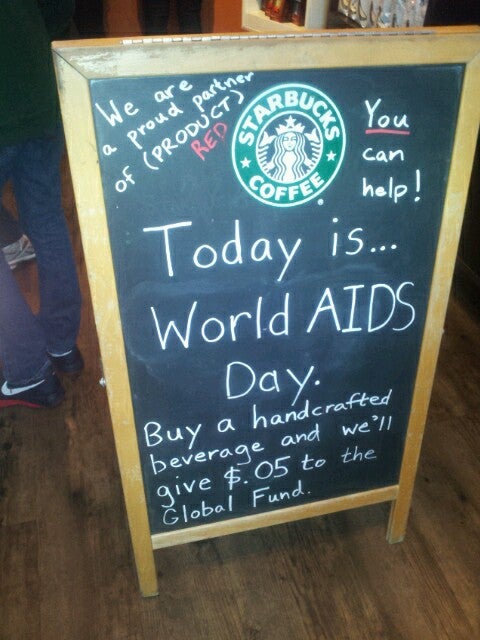 We are
a proud partner
of (PRODUCT)
RED
STARBUCKS
COFFEE
®
You
can
help!
Today is...
World AIDS
Day.
Buy a handcrafted
beverage and we'll
give $.05 to the
Global Fund.